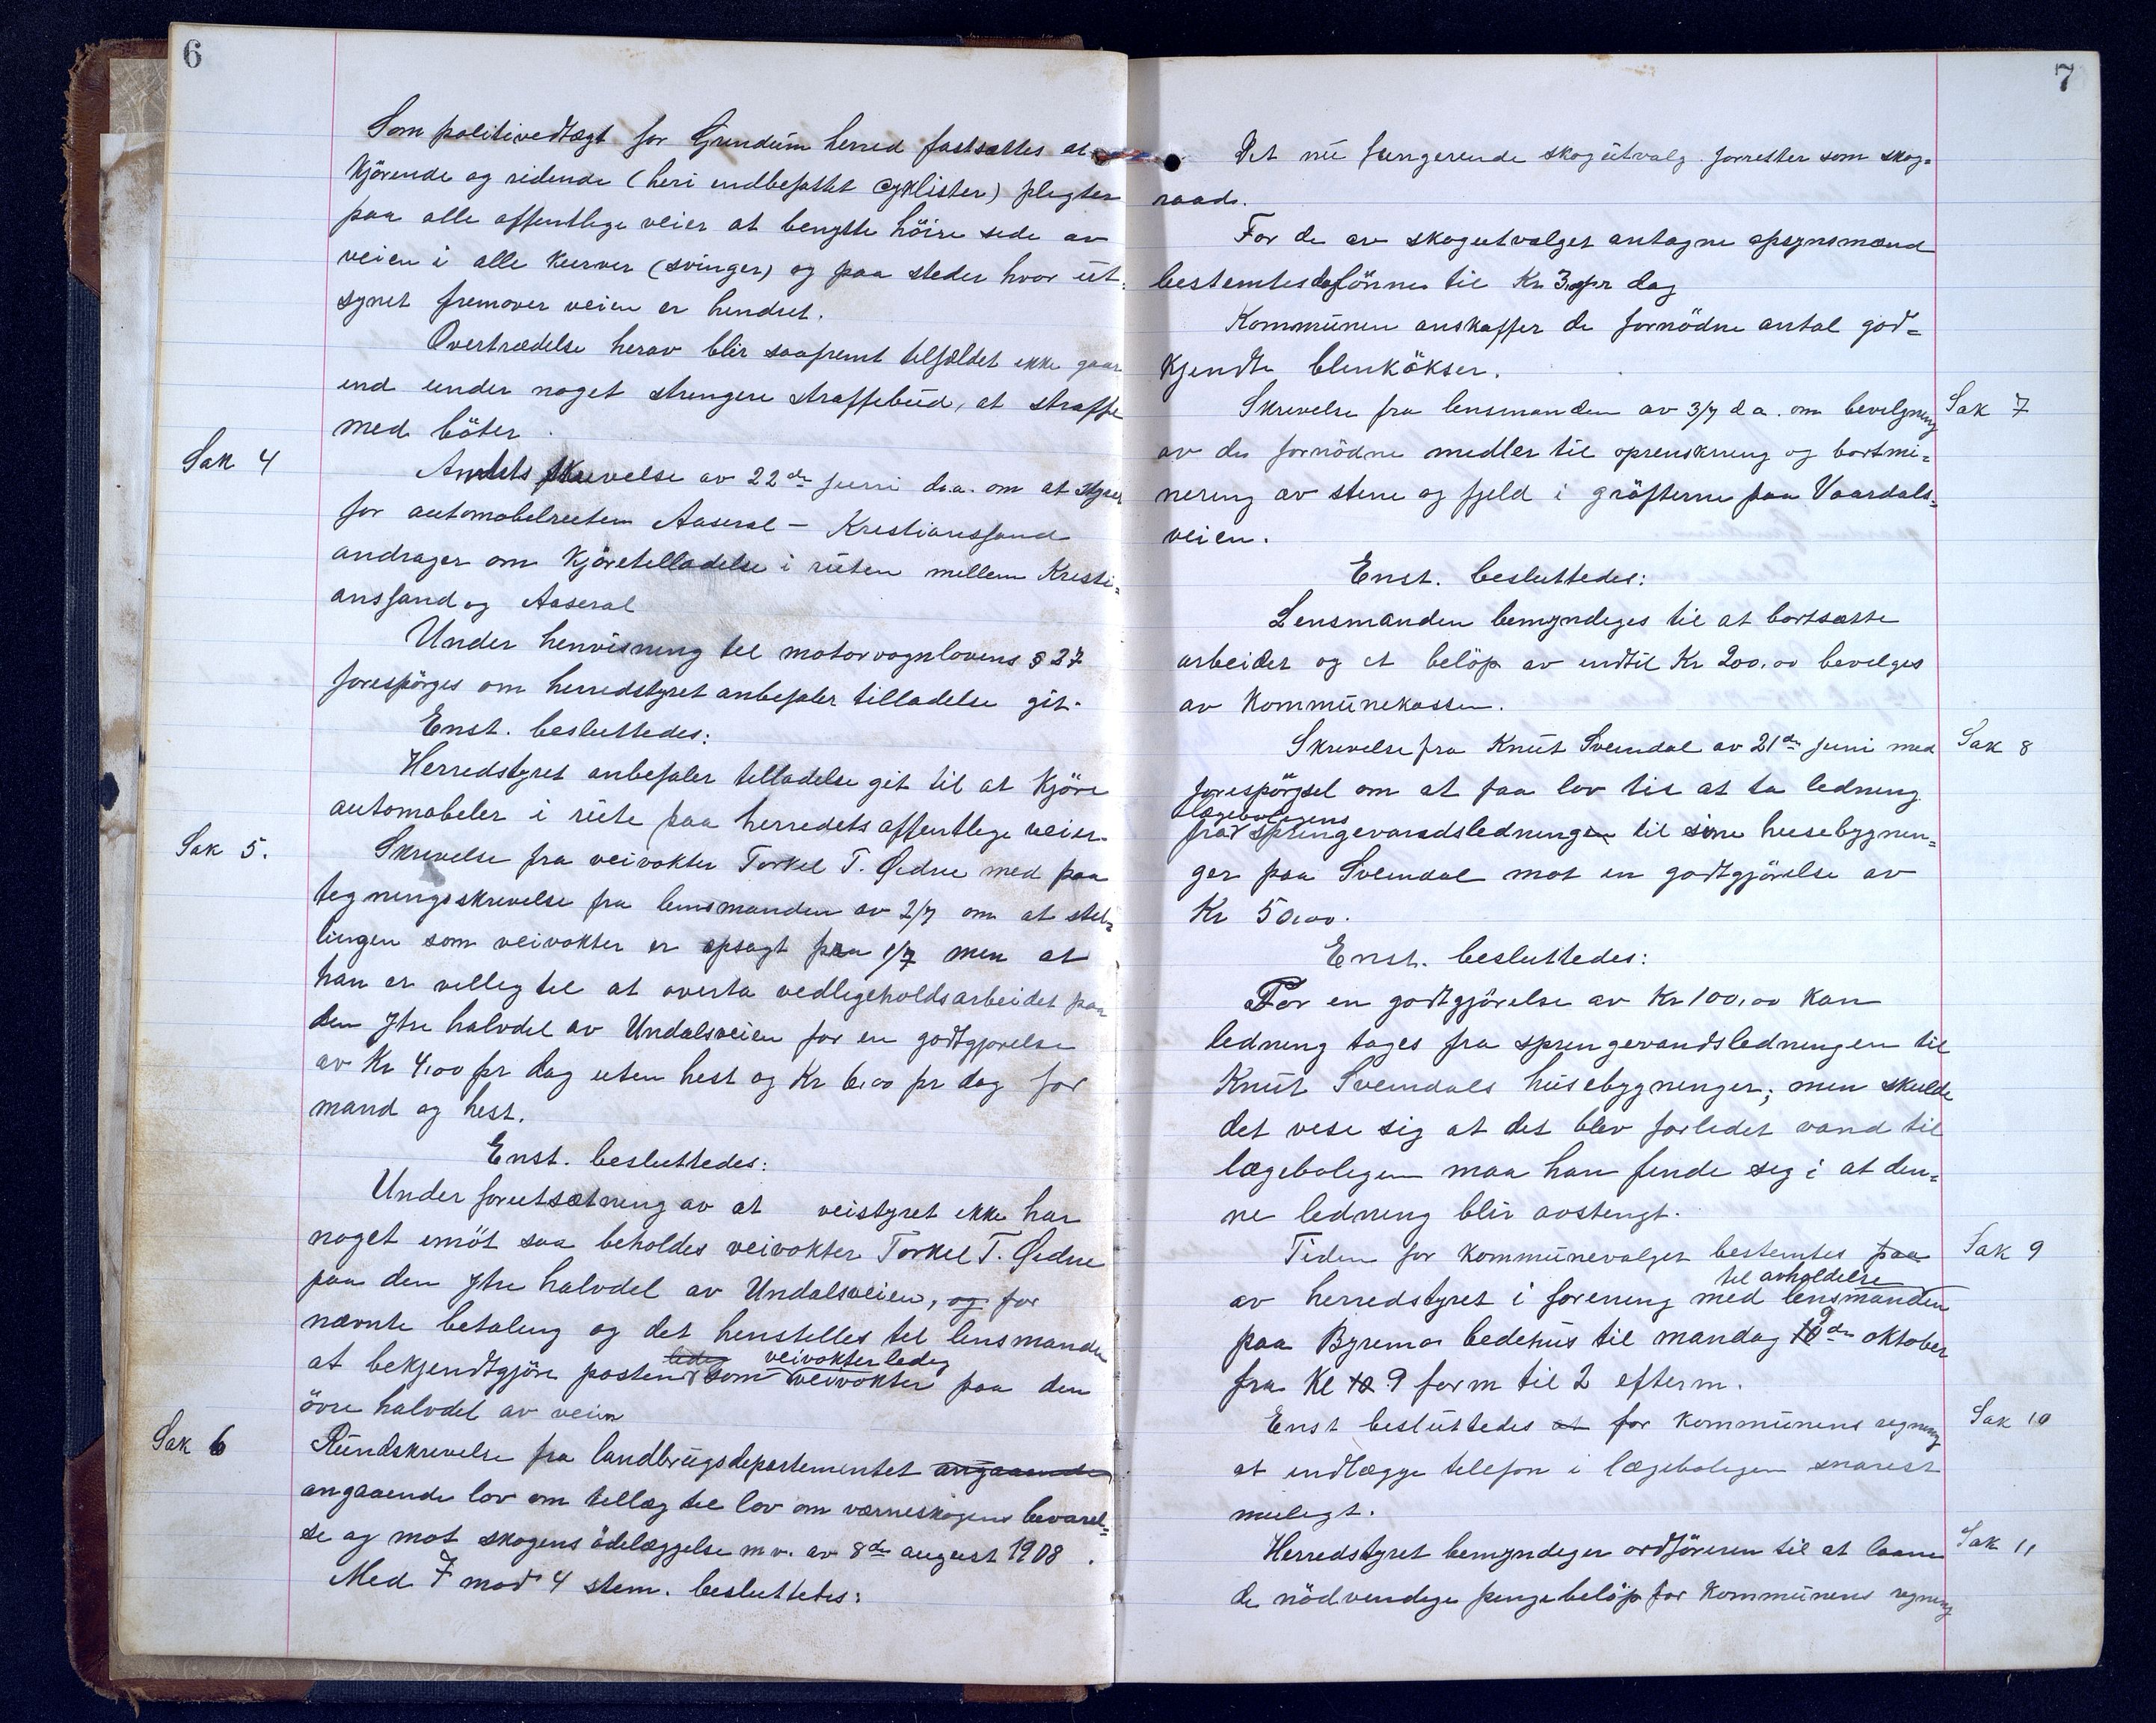 6
Som politivedtægt for Grindum herred fastsættes at
Kjörende og ridende (heri indbefattet cyklister) pligter
paa alle offentlige veier at benytte höire side av
veien i alle kurver (svinger) og paa steder hvor ut-
synet fremover veien er hindret.
Overtrædelse herav blir saafremt tilfældet ikke gaar
ind under noget strengere straffebud, at straffe
med böter.
Sak 4
Amtets skrivelse av 22de juni d.a. om at styret
for automobilruten Aaseral – Kristianssand
andrager om Kjöretilladelse i ruten mellem Kristi=
anssand og Aaseral
Under henvisning til motorvognlovens § 27
forespörges om herredstyret anbefaler tilladelse git.
Enst. besluttedes:
Herredstyret anbefaler tilladelse git til at Kjöre
automobiler i rute paa herredets offentlige veier.
Sak 5.
Skrivelse fra veivokter Torkel T. Øidne med paa
tegningsskrivelse fra lensmanden av 2/7 om at stil=
lingen som veivokter er opsagt fra 1/7 men at
han er villig til at overta vedligeholdsarbeidet paa
den ytre halvdel av Undalsveien for en godtgjörelse
av Kr 4,00 pr dag uten hest og Kr 6,00 pr dag for
mand og hest.
Enst. besluttedes:
Under forutsætning av at veistyret ikke har
noget imöt saa beholdes veivokter Torkel T. Øidne
paa den ytre halvdel av Undalsveien, og for
nævnte betaling og det henstilles til lensmanden
ledig veivokter ledig
at bekjendtgjöre posten som veivokter paa den
övre halvdel av veien
Sak 6
Rundskrivelse fra landbrugsdepartementet angaaende
angaaende lov om tillæg til lov om værneskogens bevarel=
se og mot skogens ödelæggelse m.v. av 8de august 1908.
Med 7 mod 4 stem. besluttedes:
7
Det nu fungerende skogutvalg forretter som skog=
raad.
For de av skogutvalget antagne opsynsmænd
bestemtes daglönnen til Kr 3,00 pr dag
Kommunen anskaffer de fornödne antal god=
Kjendte blinkökser.
Sak 7
Skrivelse fra lensmanden av 3/7 d a. om bevilgning
av de fornödne midler til oprenskning og bortmi=
nering av stene og fjeld i gröfterne paa Vaardals=
veien.
Enst. besluttedes:
Lensmanden bemyndiges til at bortsætte
arbeidet og et belöp av indtil Kr 200,00 bevilges
av Kommunekassen.
Sak 8
Skrivelse fra Knut Sveindal av 21de juni med
forespörgsel om at faa lov til at ta ledning
lægeboligens
fra springevandsledningen til sine husebygnin=
ger paa Sveindal mot en godtgjörelse av
Kr 50,00.
Enst. besluttedes:
For en godtgjörelse av Kr 100,00 Kan
ledning tages fra springevandsledningen til
Knut Sveindals husebygninger; men skulde
det vise sig at det blev forlidet vand til
lægeboligen maa han finde sig i at den=
ne ledning blir avstengt.
Sak 9
Tiden for Kommunevalget bestemtes paa
til avholdelse
av herredstyret i forening med lensmanden
paa Byremo bedehus til mandag 10 9de oktober
fra Kl 10 9 form til 2 efterm.
Sak 10
Enst besluttedes at for Kommunens regning
at indlægge telefon i lægeboligen snarest
muligt.
Sak 11
Herredstyret bemyndiger ordföreren til at laane
de nödvendige pengebelöp for Kommunens regning